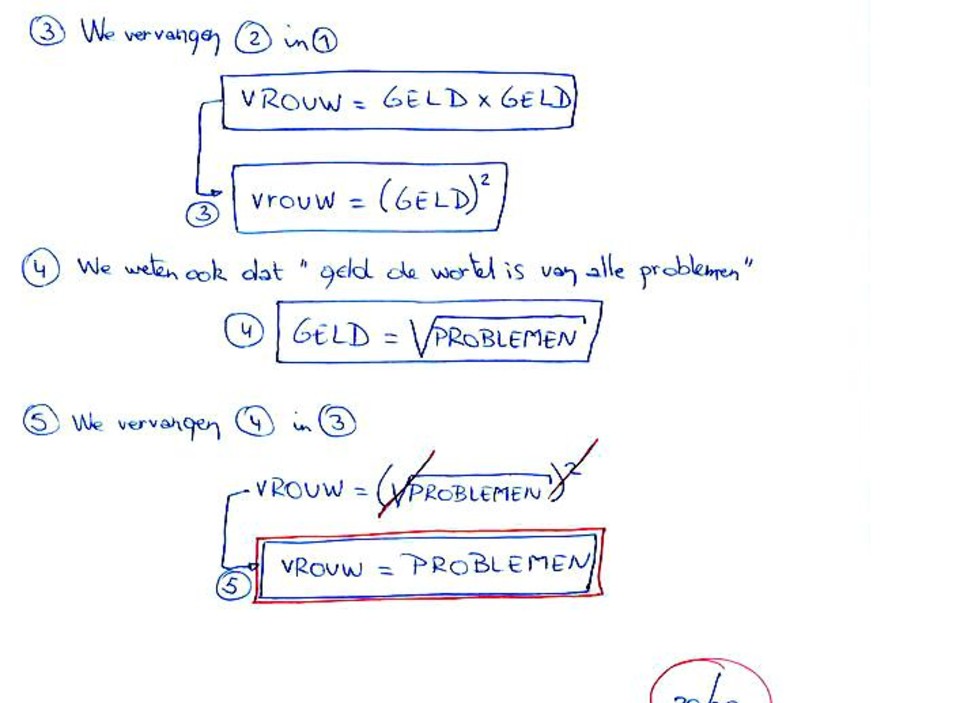 ③ We vervangen ② in ①
VROUW = GELD x GELD
③ VROUW = (GELD)²
④ We weten ook dat "geld de wortel is van alle problemen"
④ GELD = √PROBLEMEN
⑤ We vervangen ④ in ③
VROUW = (√PROBLEMEN)²
⑤ VROUW = PROBLEMEN